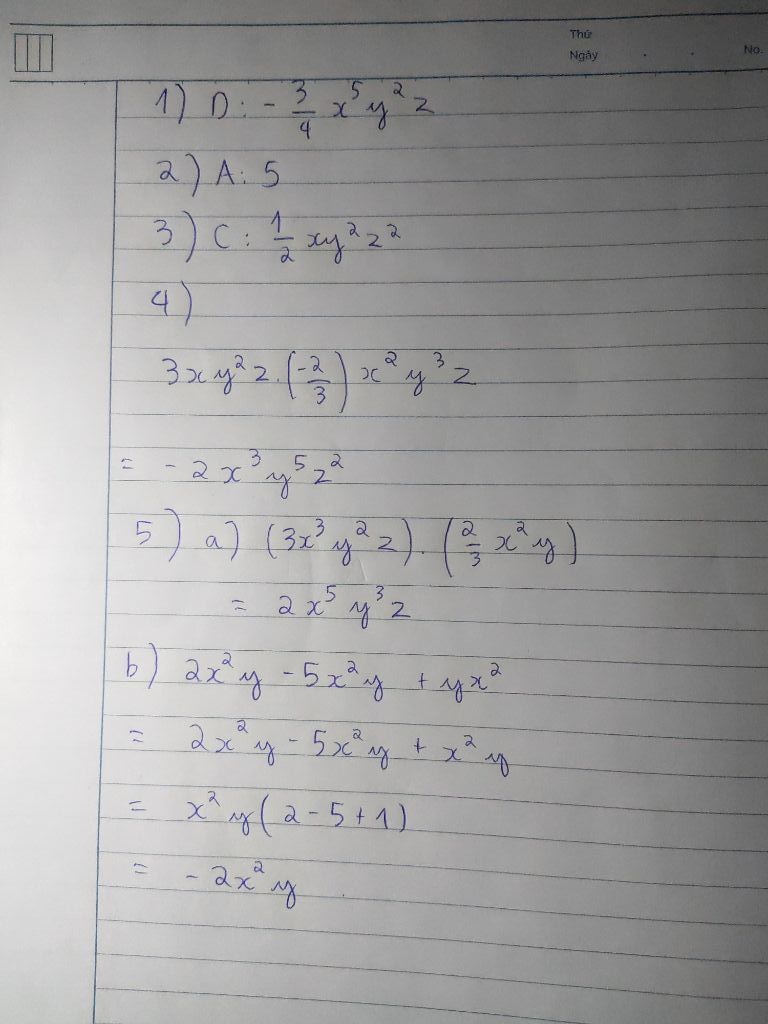 Thứ
Ngày
No.
1) D: - 3/4 x⁵y²z
2) A: 5
3) C: 1/2 xy²z²
4)
3xy²z.(-2/3) x²y³z
= - 2x³y⁵z²
5) a) (3x³y²z).(2/3 x²y)
= 2x⁵y³z
b) 2x²y - 5x²y + yx²
= 2x²y - 5x²y + x²y
= x²y(2 - 5 + 1)
= - 2x²y